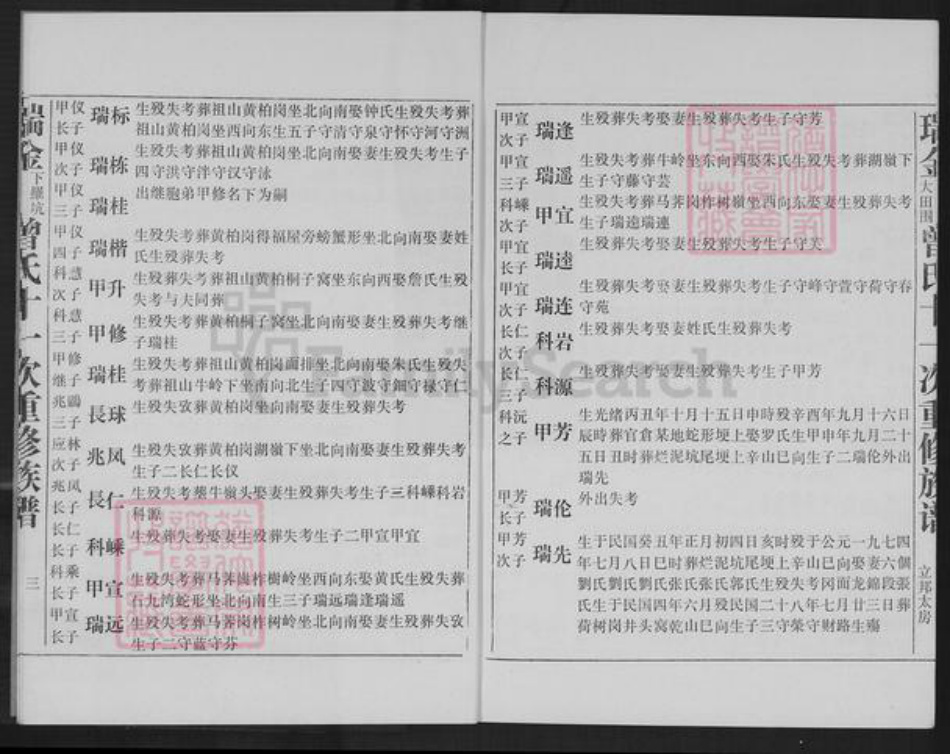 瑞金大田围曾氏十一次重修族谱
立邦太房
甲宣次子 瑞逢 生殁葬失考娶妻生殁葬失考生子守芳
甲宣三子 瑞遥 生殁失考葬牛岭坐东向西娶朱氏生殁失考葬湖嶺下
生子守藤守芸
科嵊次子 甲宜 生殁失考葬马荠岗柞树嶺坐西向东娶妻生殁葬失考
生子瑞逵瑞連
甲宜长子 瑞逵 生殁葬失考娶妻生殁葬失考生子守芙
甲宜次子 瑞连 生殁葬失考娶妻生殁葬失考生子守峰守萱守荷守春
守苑
长仁次子 科岩 生殁葬失考娶妻姓氏生殁葬失考
长仁三子 科源 生殁葬失考娶妻生殁葬失考生子甲芳
科沅之子 甲芳 生光绪丙丑年十月十五日申時殁辛酉年九月十六日
辰時葬官倉某地蛇形埂上娶罗氏生甲申年九月二十
五日丑时葬烂泥坑尾埂上辛山巳向生子二瑞伦外出
瑞先
甲芳长子 瑞伦 外出失考
甲芳次子 瑞先 生于民国癸丑年正月初四日亥時殁于公元一九七四
年七月八日巳时葬烂泥坑尾埂上辛山巳向娶妻六個
劉氏劉氏劉氏张氏张氏郭氏生殁失考冈面龙錦段張
氏生于民国四年六月殁民国二十八年七月廿三日葬
荷树岗井头窝乾山巳向生子三守荣守财路生殤
甲仪长子 瑞标 生殁失考葬祖山黄柏岗坐北向南娶钟氏生殁失考葬
祖山黄柏岗坐西向东生五子守清守泉守怀守河守洲
甲仪次子 瑞栋 生殁失考葬祖山黄柏岗坐北向南娶妻生殁失考生子
四守洪守泮守汉守泳
甲仪三子 瑞桂 出继胞弟甲修名下为嗣
甲仪四子 瑞楷 生殁失考葬黄柏岗得福屋旁螃蟹形坐北向南娶妻姓
氏生殁葬失考
科慧次子 甲升 生殁葬失考葬祖山黄柏桐子窝坐东向西娶詹氏生殁
失考与夫同葬
科慧三子 甲修 生殁失考葬黄柏桐子窝坐北向南娶妻生殁葬失考继
子瑞桂
甲修继子 瑞桂 生殁失考葬祖山黄柏岗面排坐北向南娶朱氏生殁失
考葬祖山牛岭下坐南向北生子四守波守鈿守禄守仁
兆鷗三子 長球 生殁失攷葬黄柏岗坐向南娶妻生殁葬失考
应林次子 兆凤 生殁失攷葬黄柏岗湖嶺下坐北向南娶妻生殁葬失考
生子二长仁长仪
兆凤长子 長仁 生殁失考葬牛嶺头娶妻生殁葬失考生子三科嵊科岩
科源
长仁长子 科嵊 生殁葬失考娶妻生殁葬失考生子二甲宣甲宜
科乘长子 甲宣 生殁失考葬马荠崗柞樹岭坐西向东娶黄氏生殁失葬
石九湾蛇形坐北向南生三子瑞远瑞逢瑞遥
甲宣长子 瑞远 生殁失考葬马荠岗柞树岭坐北向南娶妻生殁葬失攷
生子二守蓝守芬
瑞金下罗坑曾氏十一次重修族谱
三
FamilySearch